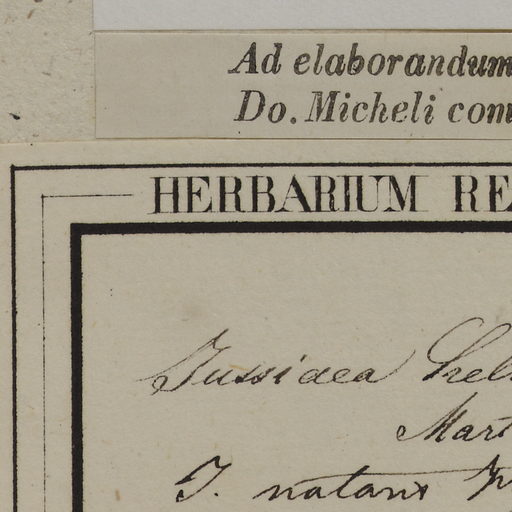 Ad elaborandum
Do. Micheli com
HERBARIUM RE
Jussiaea hel
Mart
J. natans